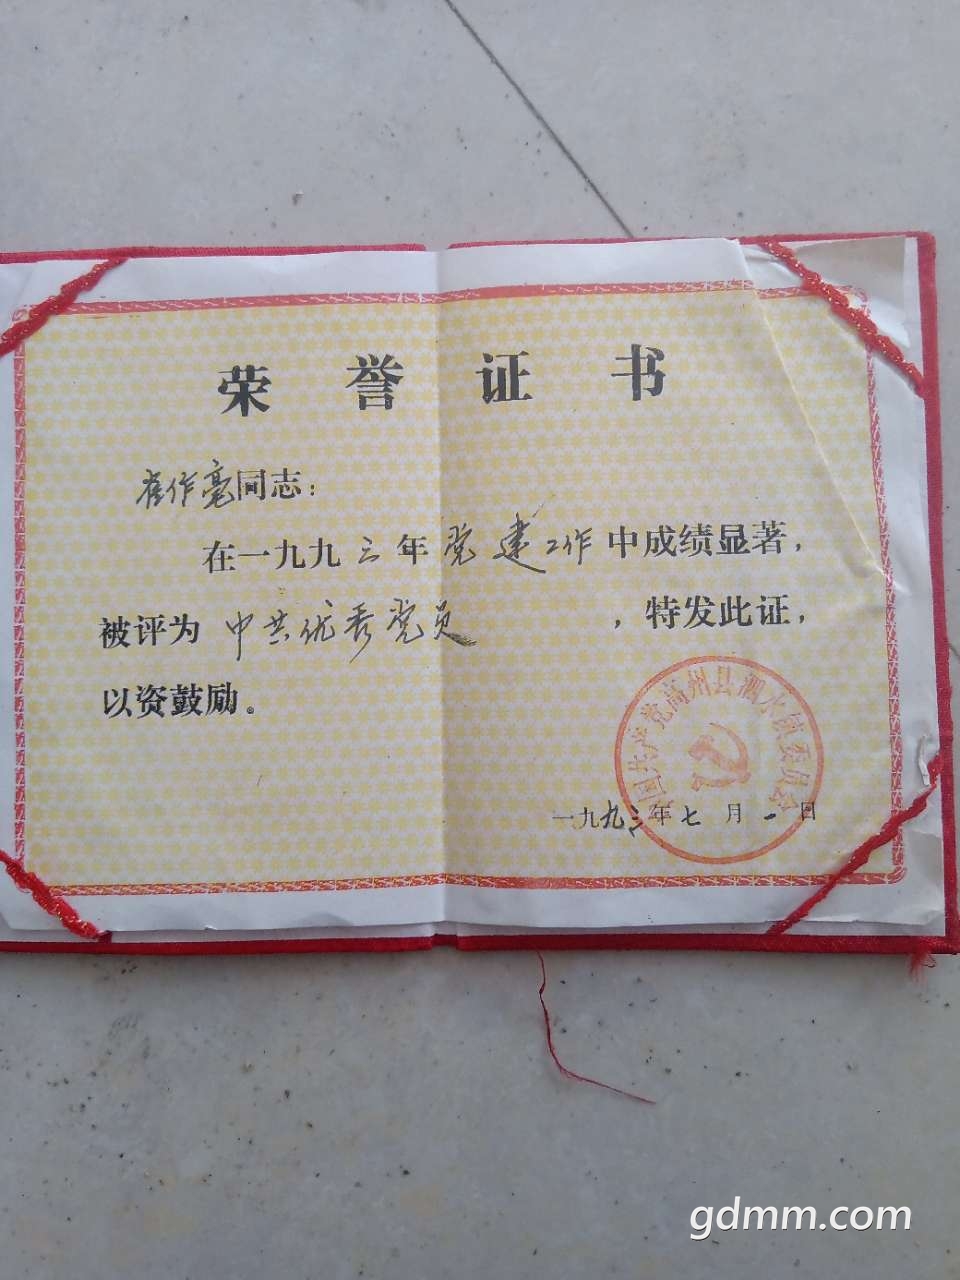 荣誉证书
崔作亮同志：
在一九九三年党建工作中成绩显著，
被评为中共优秀党员，特发此证，
以资鼓励。
中国共产党高州县泗水镇委员会
一九九三年七月一日
gdmm.com